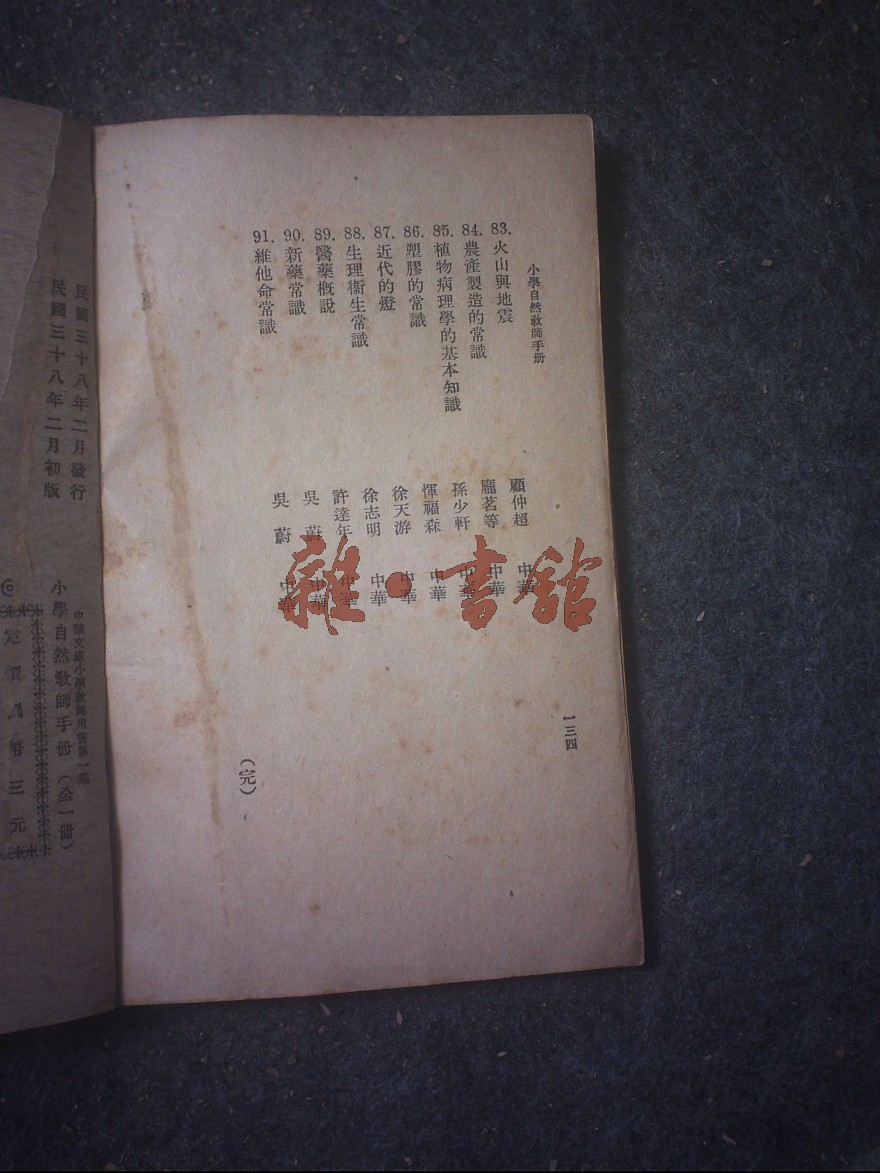 小學自然敎師手册
83.火山與地震 顧仲超 中華
84.農產製造的常識 龐茗等 中華
85.植物病理學的基本知識 孫少軒 中華
86.塑膠的常識 惲福森 中華
87.近代的燈 徐天游 中華
88.生理衞生常識 徐志明 中華
89.醫藥概說 許達年 中華
90.新藥常識 吳蔚 中華
91.維他命常識 吳蔚 中華
一三四
(完)
雜·書館
民國三十八年二月發行
民國三十八年二月初版
中華文庫小學敎師用書第一集
小學自然敎師手冊(全一冊)
定價 三元